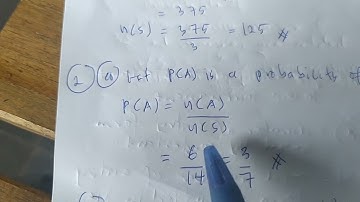 = 375
n(s) = 375/3 = 125 #
2 (a) Let P(A) is a probability of
P(A) = n(A)/n(S)
= 6/14 = 3/7 #